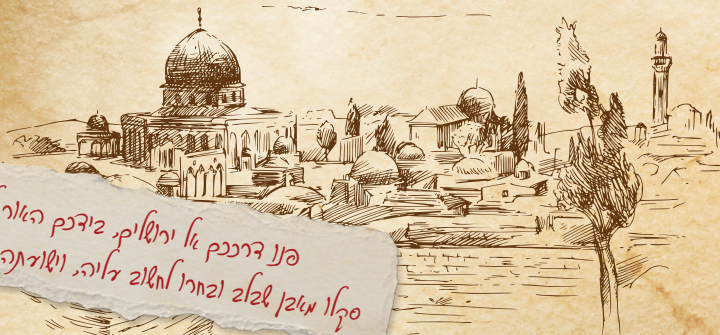 פנו דרככם אל ירושלים, בידכם האור
סקלו מאבן שבלב ובחרו לחשוב עליה, וישועתה